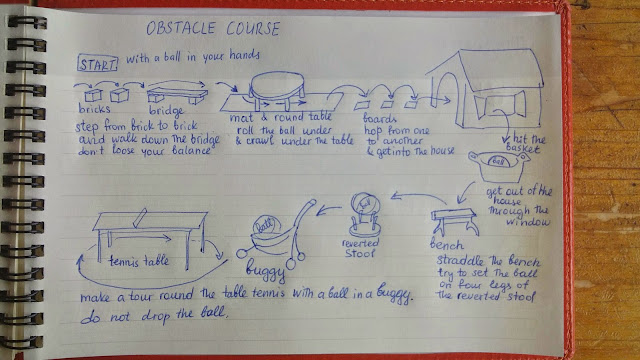 OBSTACLE COURSE
START with a ball in your hands
bricks bridge
step from brick to brick
and walk down the bridge
don't loose your balance
mat & round table
roll the ball under
& crawl under the table
boards
hop from one
to another
& get into the house
hit the
basket
Ball
get out of the
house
through the
window
bench
straddle the bench
try to set the ball
on four legs of
the reverted stool
Ball
reverted
stool
Ball
buggy
tennis table
make a tour round the table tennis with a ball in a buggy.
do not drop the ball.